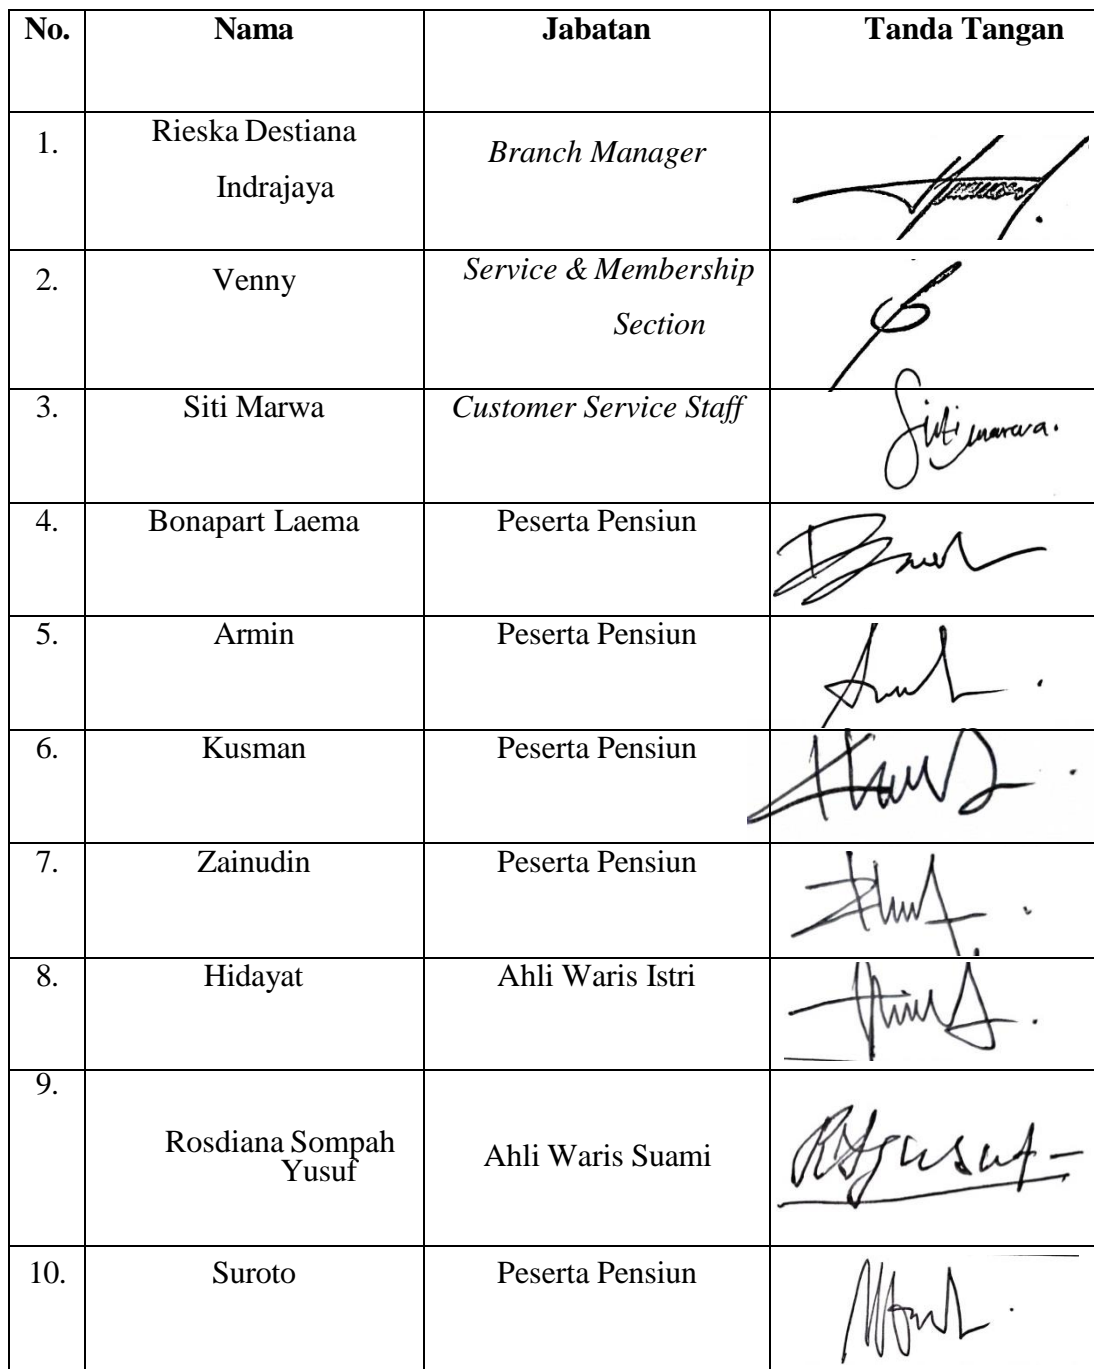 No. Nama Jabatan Tanda Tangan
1. Rieska Destiana
Indrajaya
Branch Manager
2. Venny
Service & Membership
Section
3. Siti Marwa Customer Service Staff Siti marwa.
4. Bonapart Laema Peserta Pensiun
5. Armin Peserta Pensiun
6. Kusman Peserta Pensiun
7. Zainudin Peserta Pensiun
8. Hidayat Ahli Waris Istri
9.
Rosdiana Sompah
Yusuf
Ahli Waris Suami
10. Suroto Peserta Pensiun